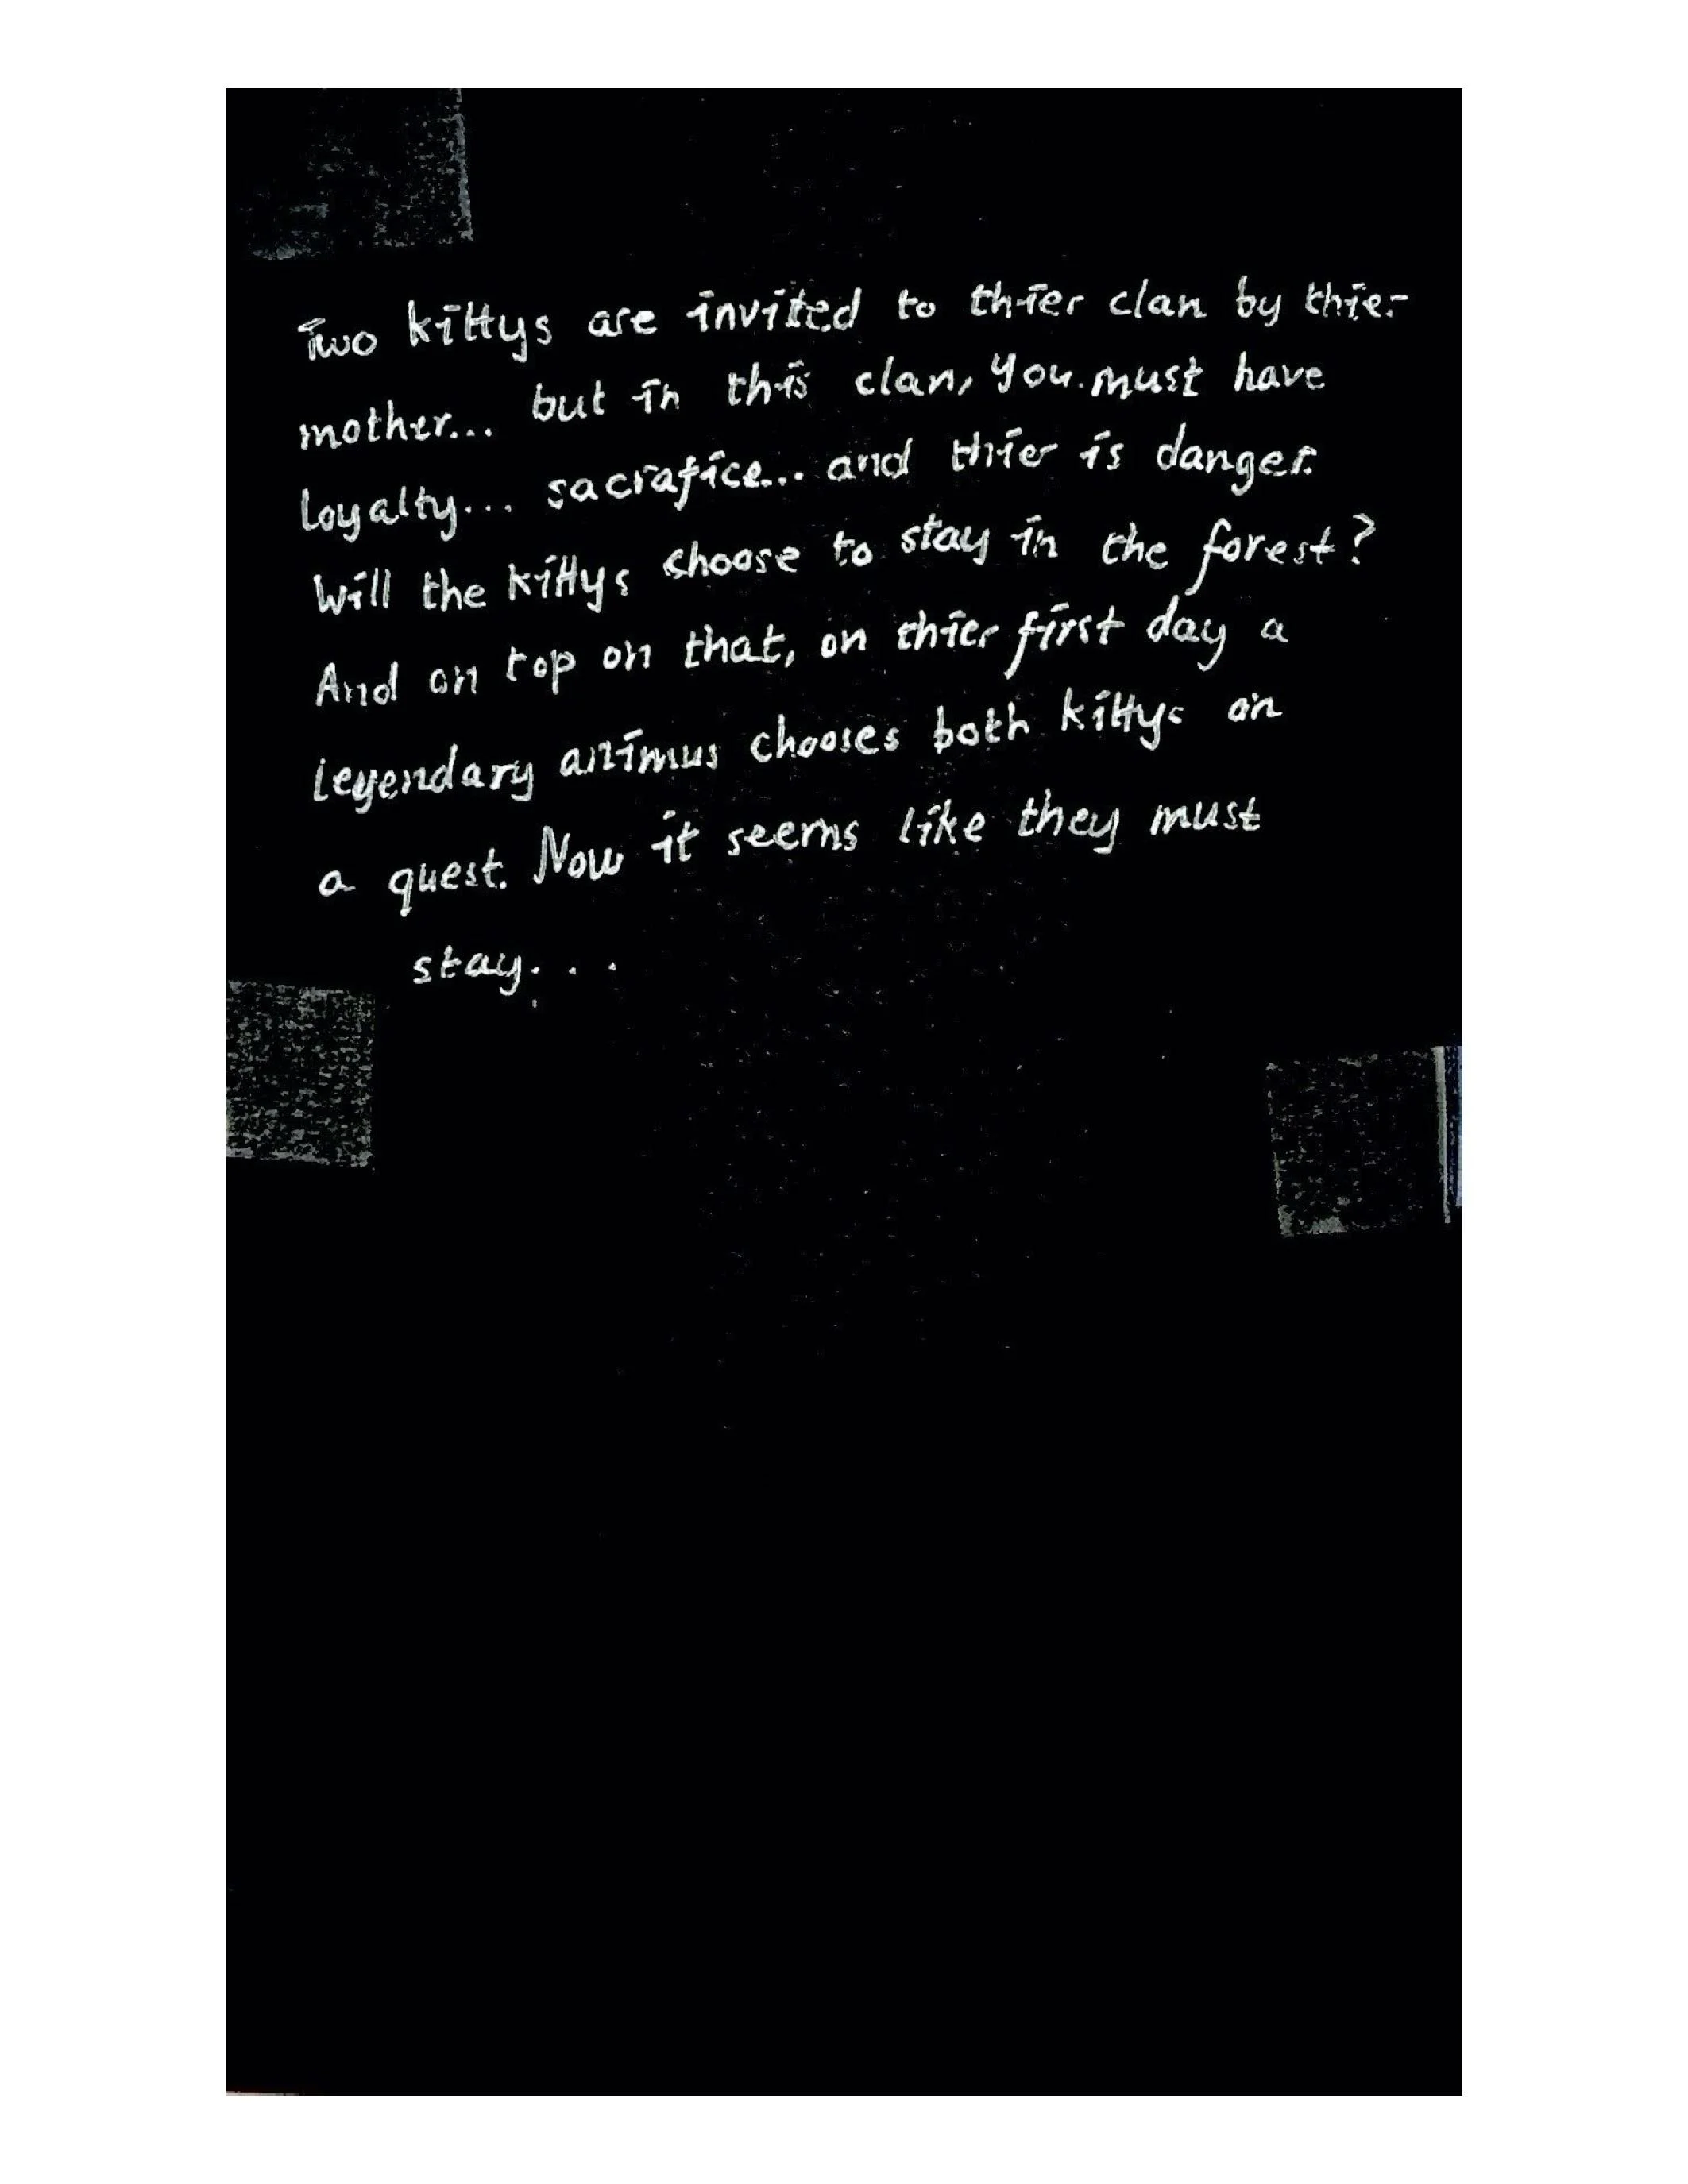 Two kittys are invited to thier clan by thier
mother... but in this clan, you must have
loyalty... sacrafice... and thier is danger.
Will the kittys choose to stay in the forest?
And on top on that, on thier first day a
legendary animus chooses both kittys on
a quest. Now it seems like they must
stay...